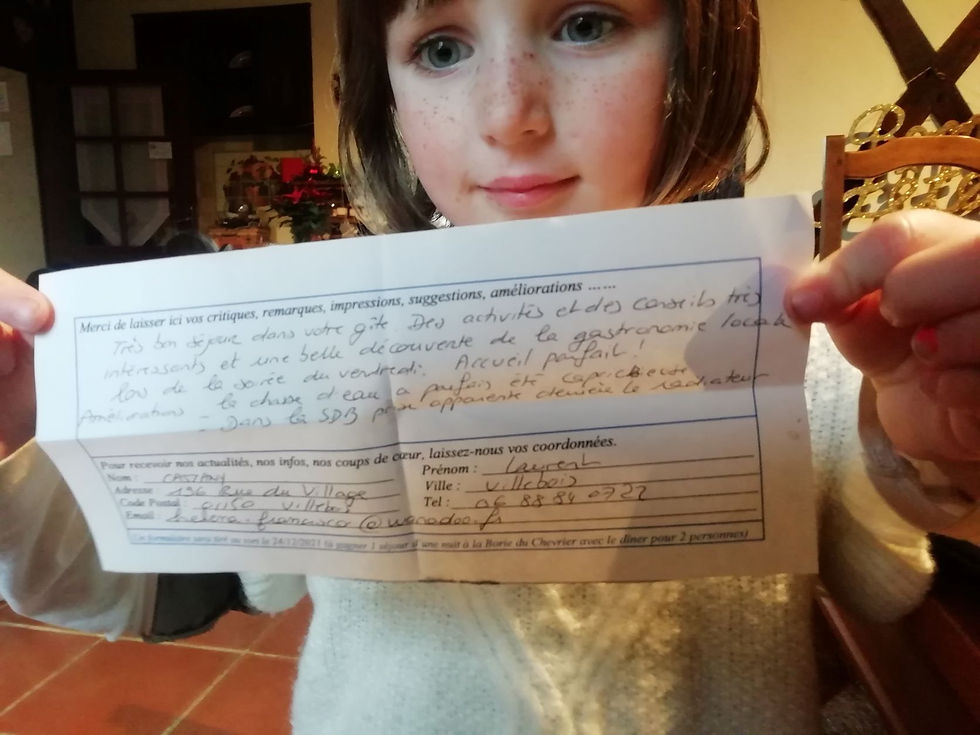 Merci de laisser ici vos critiques, remarques, impressions, suggestions, améliorations ......
Très bon séjour dans votre gîte. Des activités et des conseils très
intéressants et une belle découverte de la gastronomie locale
lors de la soirée du vendredi. Accueil parfait !
Améliorations - la chasse d'eau a parfois été capricieuse
- Dans la SDB prise apparente derrière le radiateur
Pour recevoir nos actualités, nos infos, nos coups de cœur, laissez-nous vos coordonnées.
Nom : Prénom : Laurent
Adresse : 196 Rue du Village Ville : Villebois
Code Postal : 01150 Villebois Tel : 06 88 84 07 22
Email : @wanadoo.fr
(Ce formulaire sera tiré au sort le 24/12/2021 (à gagner 1 séjour d'une nuit à la Borie du Chevrier avec le dîner pour 2 personnes)